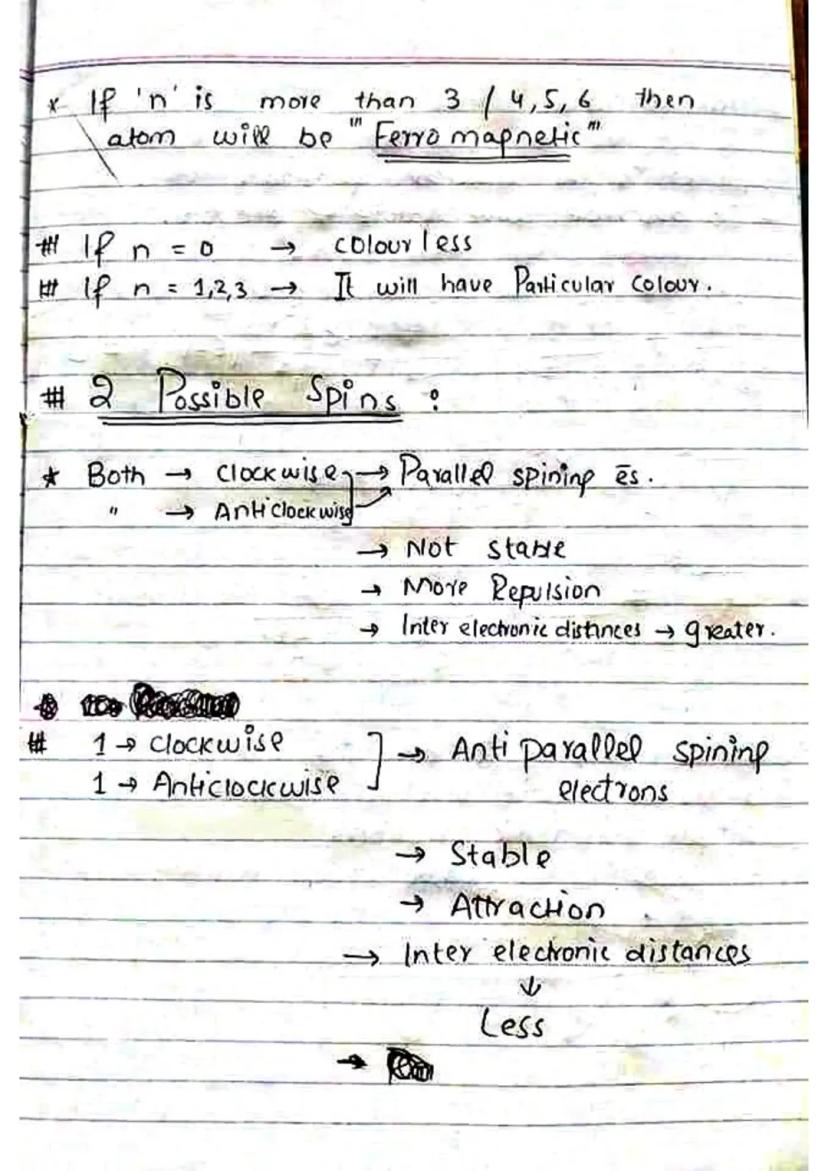 * If 'n' is more than 3 / 4, 5, 6 then
atom will be "' Ferro magnetic "'
# If n = 0 → colour less
# If n = 1,2,3 → It will have Particular Colour.
# 2 Possible Spins :
* Both → Clockwise → Parallel spining ēs.
" → Anticlockwise
→ Not stable
→ More Repulsion
→ Inter electronic distinces → greater.
# 1 → Clockwise ] → Anti parallel spining
1 → Anticlockwise electrons
→ Stable
→ Attraction
→ Inter electronic distances
↓
Less
→